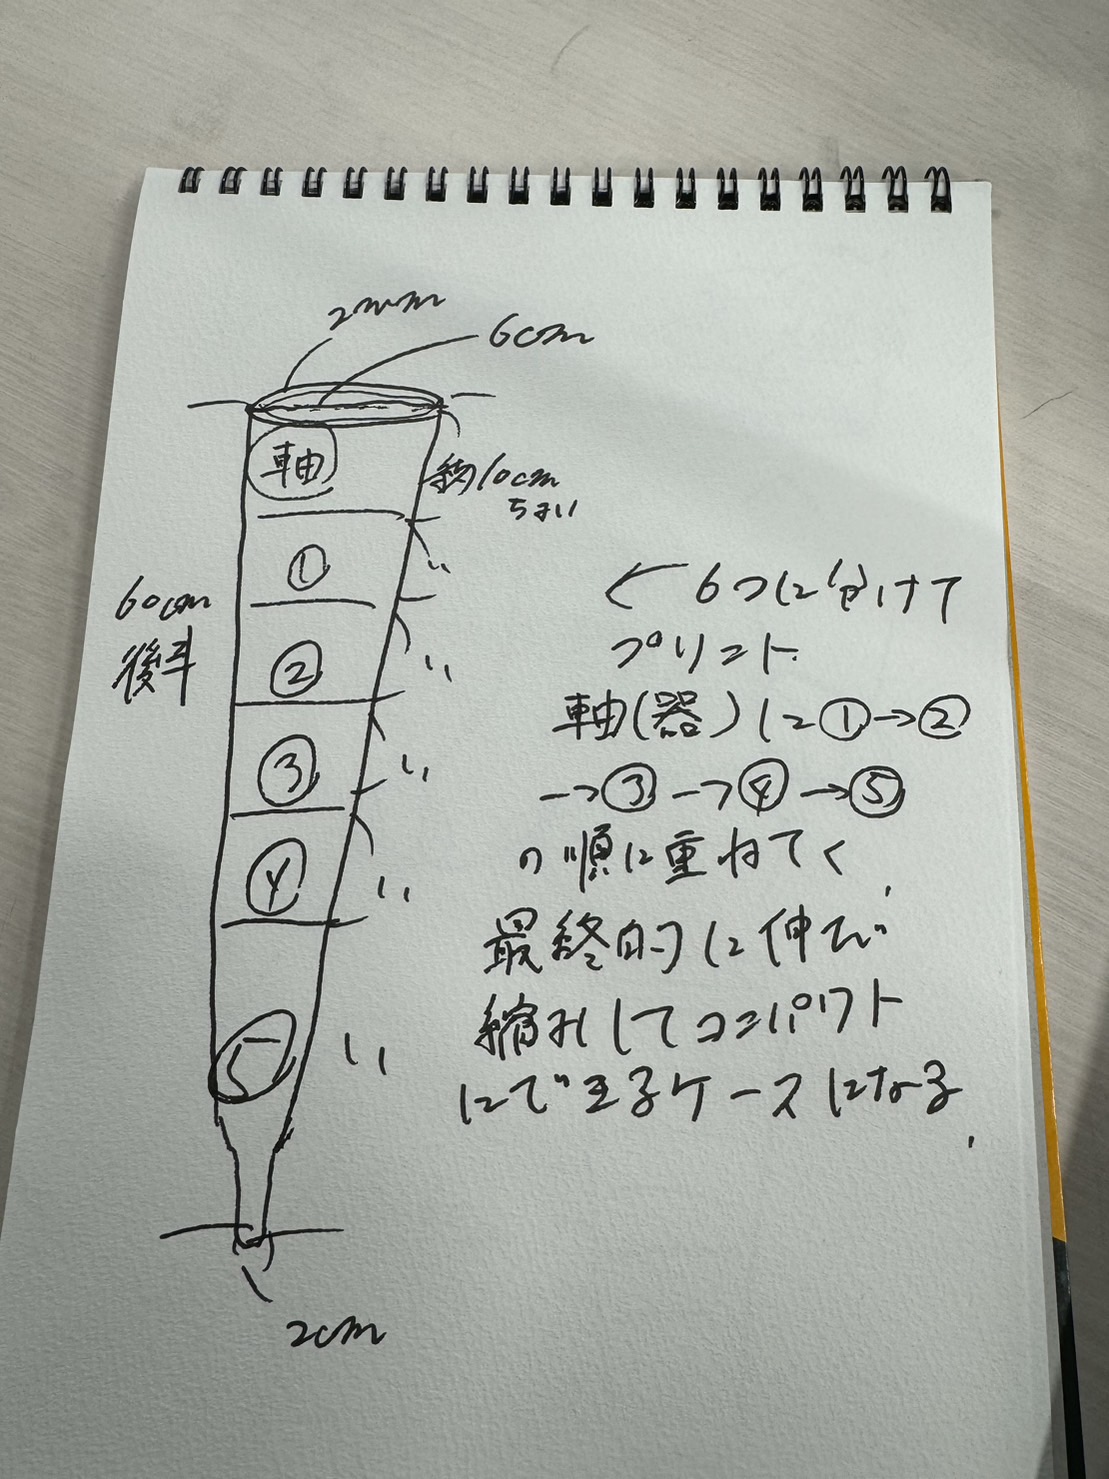 2mm
6cm
軸
約10cm
ちょい
①
〃
60cm
後半
②
〃
③
〃
④
〃
⑤
〃
2cm
← 6つに分けて
プリント
軸(器)に①→②
→③→④→⑤
の順に重ねてく
最終的に伸び
縮みしてコンパクト
にできるケースになる